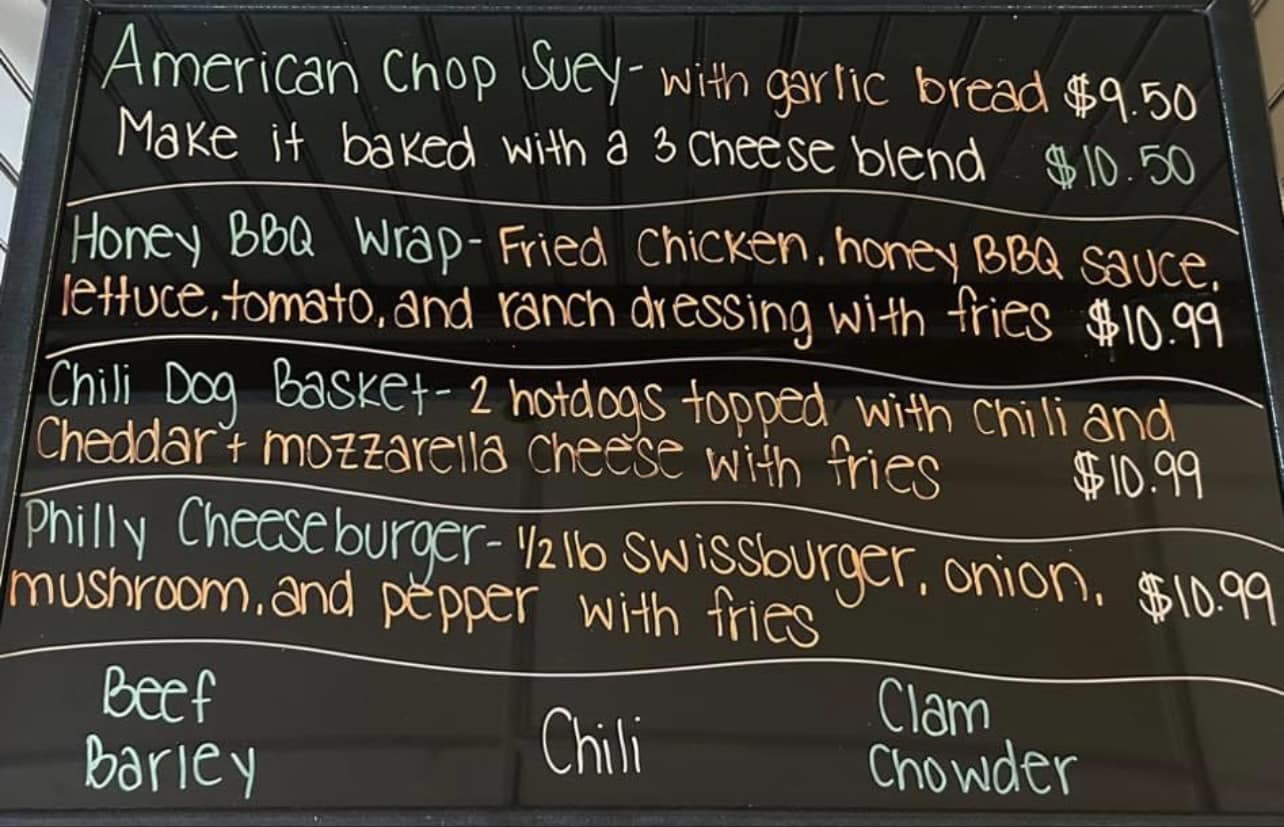 American Chop Suey- with garlic bread $9.50
Make it baked with a 3 Cheese blend $10.50
Honey BBQ Wrap- Fried Chicken, honey BBQ sauce,
lettuce, tomato, and ranch dressing with fries $10.99
Chili Dog Basket- 2 hotdogs topped with Chili and
Cheddar + mozzarella Cheese with fries $10.99
Philly Cheeseburger- 1/2 lb Swissburger, onion,
mushroom, and pepper with fries $10.99
Beef
Barley
Chili
Clam
Chowder